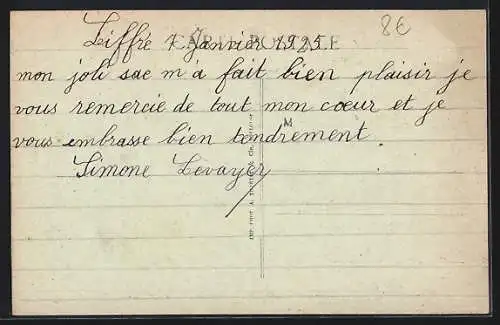 Liffré 1 Janvier 1925
CARTE POSTALE
8€
mon joli sac m'a fait bien plaisir je
vous remercie de tout mon cœur et je
vous embrasse bien tendrement.
Simone Levayer
M